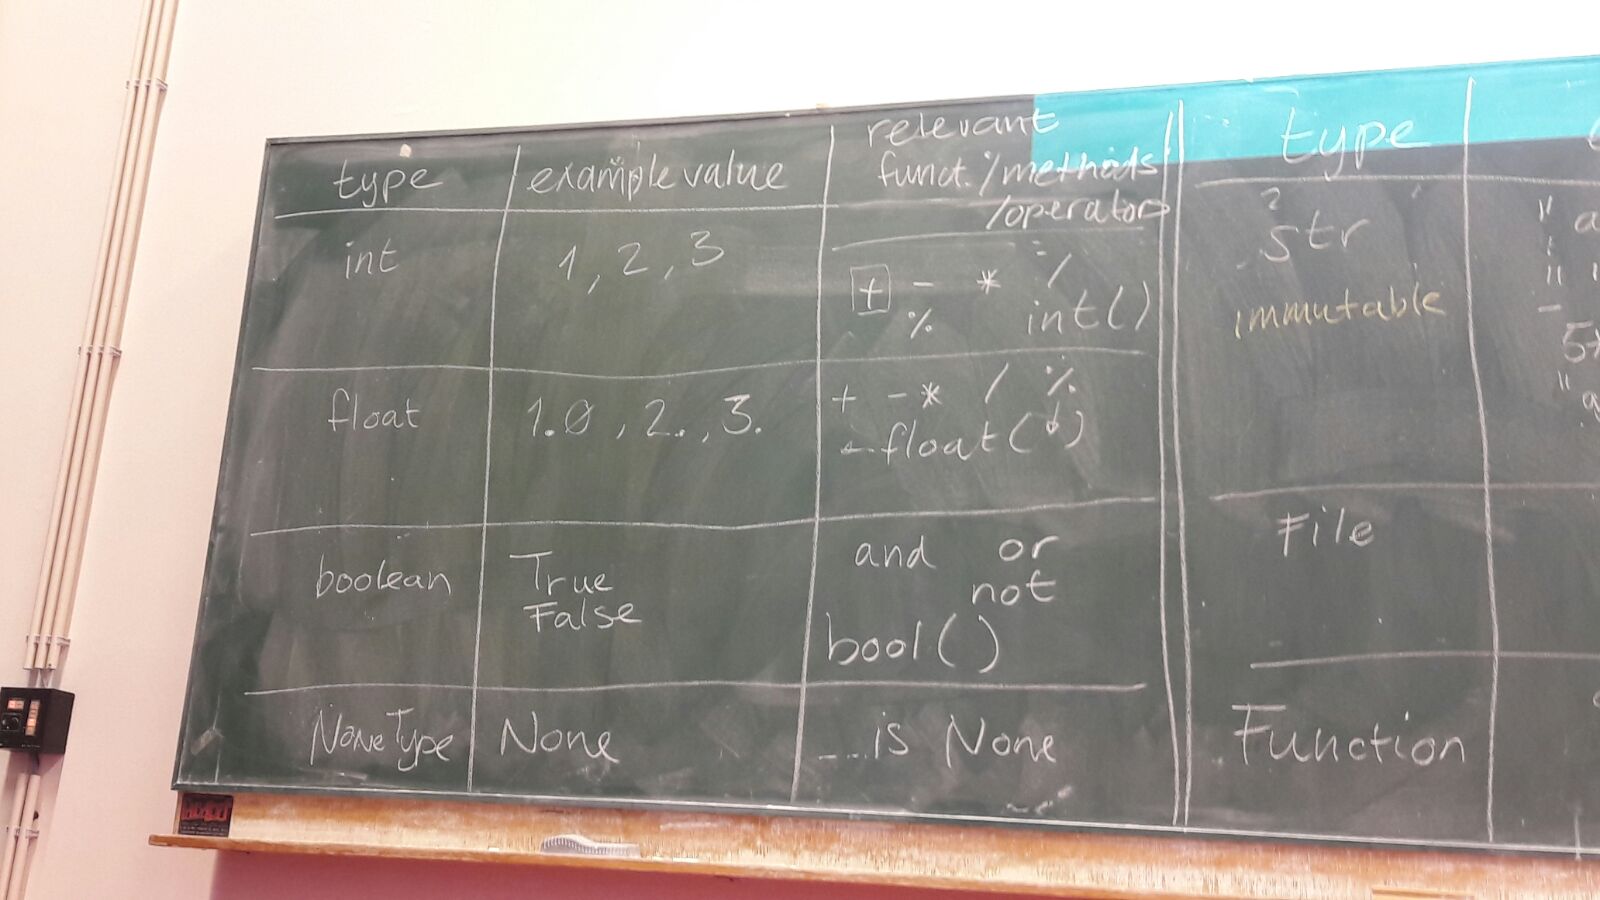 type
example value
relevant
funct./methods
/operators
int
1, 2, 3
+ - * /
% int()
float
1.0, 2., 3.
+ - * / %
float( )
boolean
True
False
and or
not
bool()
NoneType
None
...is None
type
str
immutable
File
Function